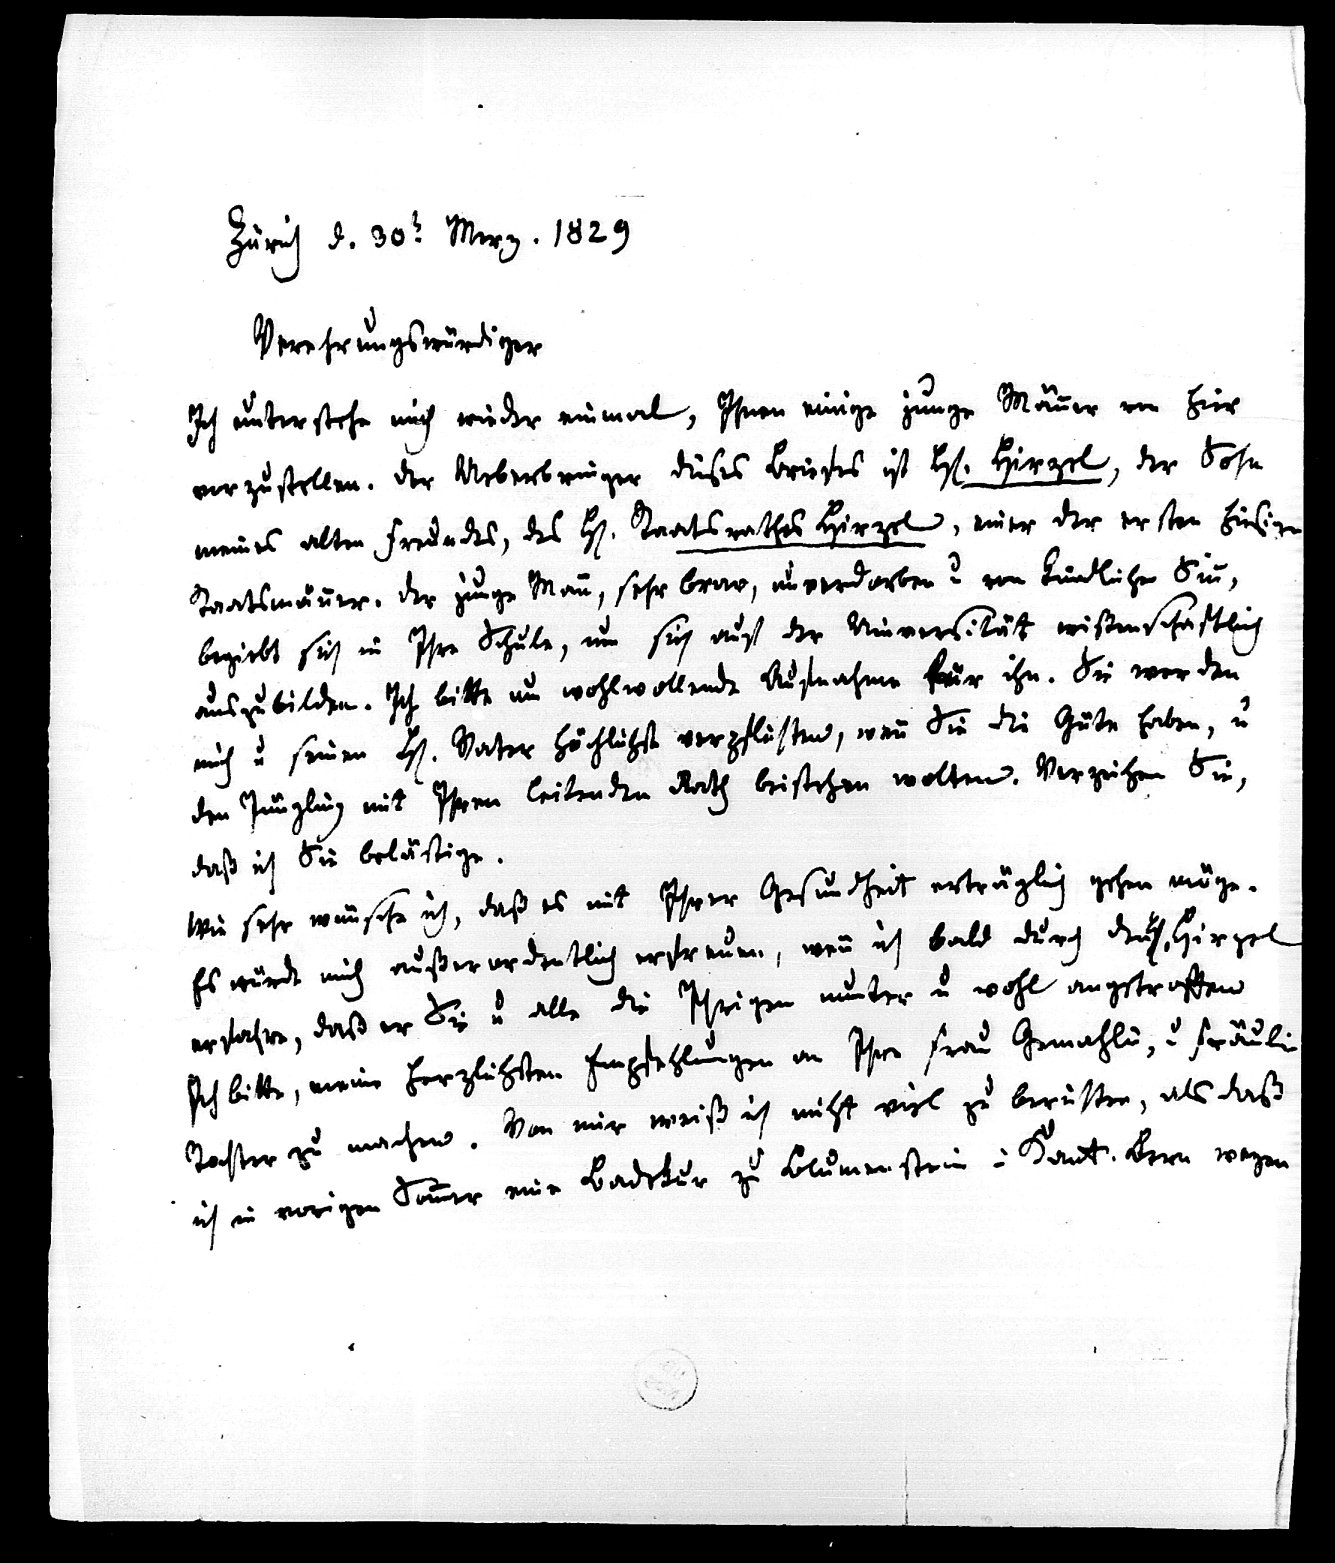 Zürich d. 30t. Merz. 1829
Verehrungswürdiger
Ich unterstehe mich wieder einmal, Ihnen einige junge Mäñer von hier
vorzustellen. Der Ueberbringer dieses Briefes ist H. Hirzel, der Sohn
meines alten Freundes, des H. Staatsrathes Hirzel, einer der ersten hiesigen
Staatsmäñer. Der junge Mañ, sehr brav, unverdorben u von kindlichem Siñ,
begiebt sich in Ihre Schule, um sich auf der Universität wißenschaftlich
auszubilden. Ich bitte um wohlwollende Aufnahme für ihn. Sie werden
mich u seinen H. Vater höchlichst verpflichten, weñ Sie die Güte haben, u
den Jüngling mit Ihrem leitenden Rath beistehen wolten. Verzeihen Sie,
daß ich Sie belästige.
Wie sehr wünsche ich, daß es mit Ihrer Gesundheit erträglich gehen möge.
Es würde mich außerordentlich erfreuen, weñ ich bald durch den H. Hirzel
erfahre, daß er Sie u alle die Ihrigen munter u wohl angetroffen
Ich bitte, meine herzlichsten Empfehlungen an Ihre Frau Gemahlin, u Fräulein
Tochter zu machen. Von mir weiß ich nicht viel zu berichten, als daß
ich in vorigen Som̃er eine Badekur zu Blumenstein i Kant. Bern wegen